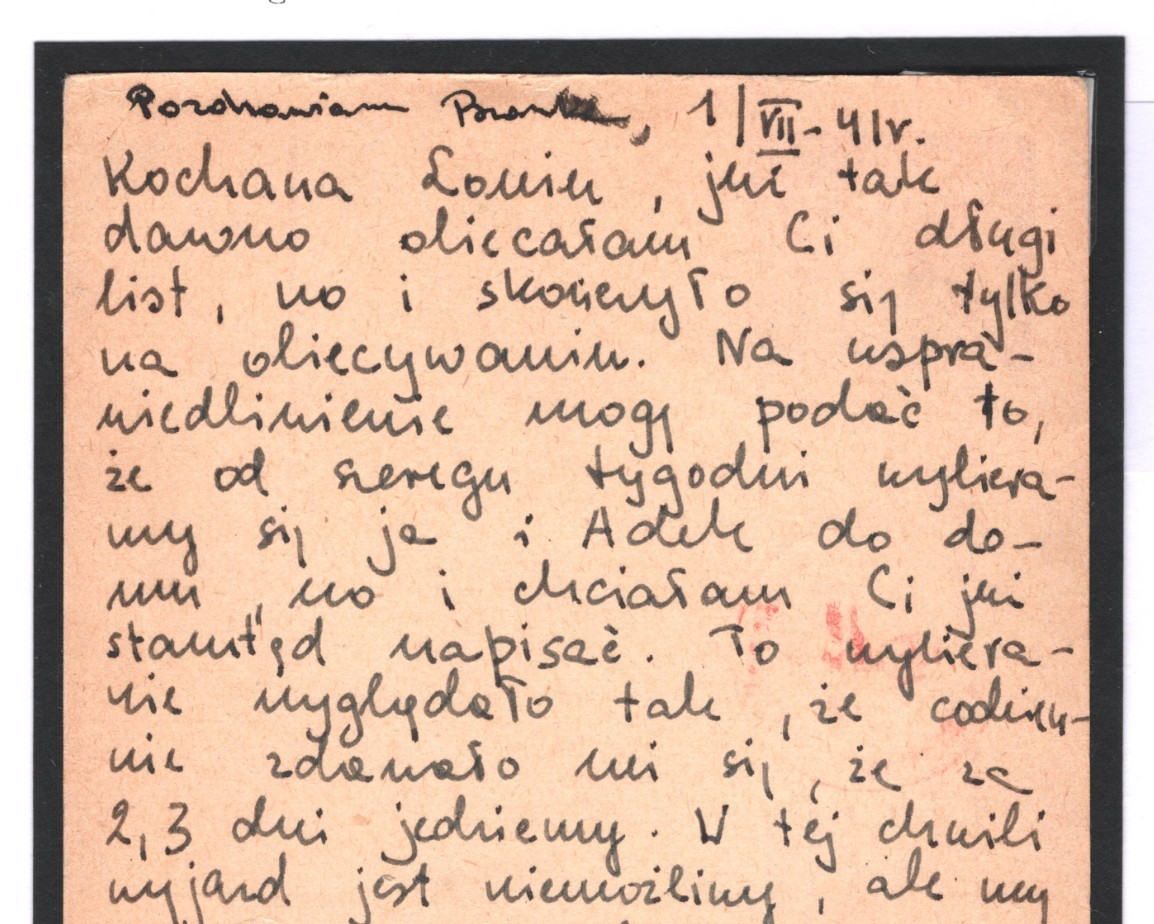 Pozdrawiam, 1/VII-41r.
Kochana Loniu, już tak
dawno obiecałam Ci długi
list, no i skończyło się tylko
na obiecywaniu. Na uspra-
wiedliwienie mogę podać to,
że od szeregu tygodni wybiera-
my się ja i Adek do do-
mu, no i chciałam Ci już
stamtąd napisać. To wybiera-
nie wyglądało tak, że codzien-
nie zdawało mi się, że za
2,3 dni jedziemy. W tej chwili
wyjazd jest niemożliwy, ale my